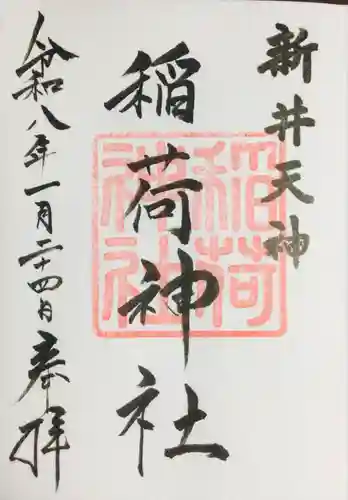 新井天神
稲荷神社
令和八年一月二十四日奉拝
稲荷
神社